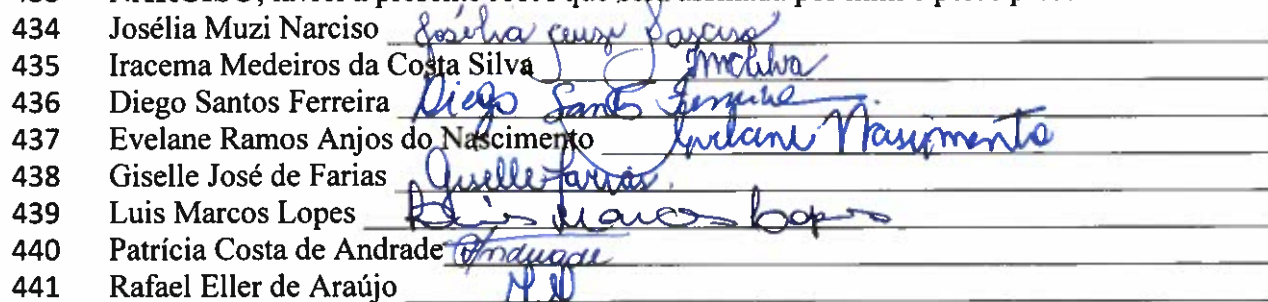 434 Josélia Muzi Narciso Josélia Muzi Narciso
435 Iracema Medeiros da Costa Silva IMCSilva
436 Diego Santos Ferreira Diego Santos Ferreira
437 Evelane Ramos Anjos do Nascimento Evelane Nascimento
438 Giselle José de Farias Giselle Farias.
439 Luis Marcos Lopes Luis Marcos Lopes
440 Patrícia Costa de Andrade Andrade
441 Rafael Eller de Araújo